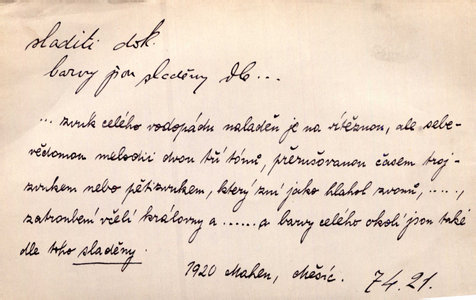 sladiti dok.
barvy jsou sladěny Db...
... zvuk celého vodopádu naladěn je na vítěznou, ale sebe-
vědomou melodii dvou tří tónů, přerušovanou časem troj-
zvukem nebo pětizvukem, který zní jako hlahol zvonů, .....,
zatroubení včelí královny a ...... a barvy celého okolí jsou také
dle toho sladěny.
1920 Mahen, Měsíc. 74.21.